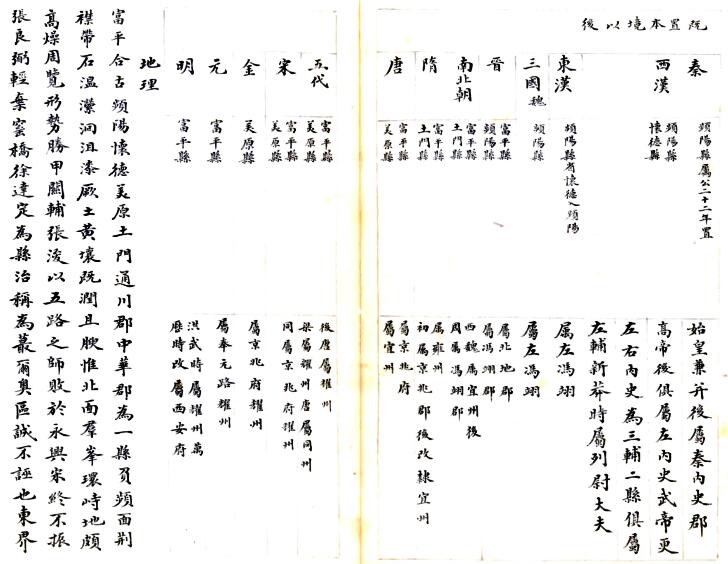 既置本境以後
秦
頻陽縣厲公二十二年置
始皇兼并後屬秦內史郡
西漢
頻陽縣
懷德縣
高帝後俱屬左內史武帝更
左右內史為三輔二縣俱屬
左輔新莽時屬列尉大夫
東漢
頻陽縣省懷德入頻陽
屬左馮翊
三國魏
頻陽縣
屬左馮翊
晉
富平縣
頻陽縣
屬北地郡
屬馮翊郡
南北朝
富平縣
土門縣
西魏屬宜州後
周屬馮翊郡
隋
富平縣
土門縣
屬雍州
初屬京兆郡後改隸宜州
唐
富平縣
美原縣
屬京兆府
屬宜州
五代
富平縣
美原縣
後唐屬耀州
梁屬耀州唐屬同州
宋
富平縣
美原縣
同屬京兆府耀州
金
美原縣
屬京兆府耀州
元
富平縣
屬奉元路耀州
明
富平縣
洪武時屬耀州萬
歷時改屬西安府
地理
富平合古頻陽懷德美原土門通川郡中華郡為一縣負頻面荊
襟帶石溫瀠洄沮漆厥土黃壤既潤且腴惟北面羣峯環峙地頗
高燥周覽形勢勝甲關輔張浚以五路之師敗於永興宋終不振
張良弼輕棄窰橋徐達定為縣治稱為蕞爾奧區誠不誣也東界